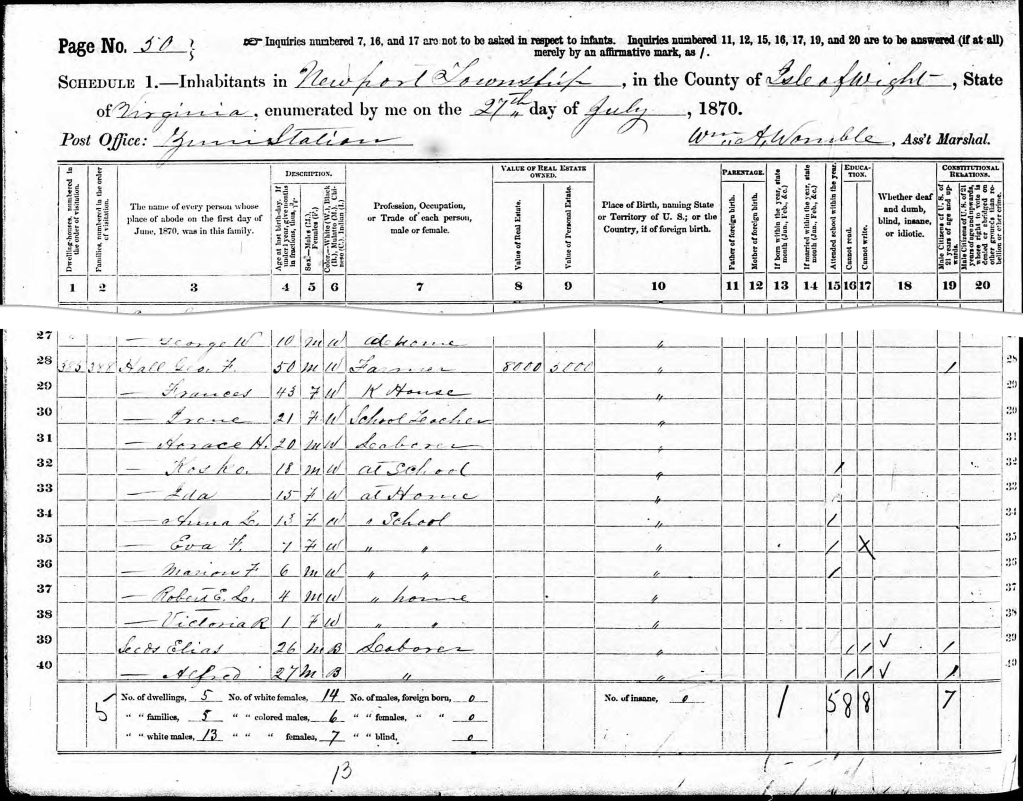 Page No. 50 Inquiries numbered 7, 16, and 17 are not to be asked in respect to infants. Inquiries numbered 11, 12, 15, 16, 17, 19, and 20 are to be answered (if at all)
merely by an affirmative mark, as /.
SCHEDULE 1.—Inhabitants in Newport Township, in the County of Isle of Wight, State
of Virginia, enumerated by me on the 27th day of July, 1870.
Post Office: Zuni Station Wm A. Womble, Ass't Marshal.
Dwelling-houses, numbered in the order of visitation.
Families, numbered in the order of visitation.
The name of every person whose place of abode on the first day of June, 1870, was in this family.
DESCRIPTION.
Age at last birth-day. If under 1 year, give months in fractions, thus,
Sex.—Males (M.), Females (F.)
Color.—White (W.), Black (B.), Mulatto (M.), Chinese (C.), Indian (I.)
Profession, Occupation, or Trade of each person, male or female.
VALUE OF REAL ESTATE OWNED.
Value of Real Estate.
Value of Personal Estate.
Place of Birth, naming State or Territory of U. S.; or the Country, if of foreign birth.
PARENTAGE.
Father of foreign birth.
Mother of foreign birth.
If born within the year, state month (Jan., Feb., &c.)
If married within the year, state month (Jan., Feb., &c.)
Attended school within the year.
EDUCATION.
Cannot read.
Cannot write.
Whether deaf and dumb, blind, insane, or idiotic.
CONSTITUTIONAL RELATIONS.
Male Citizens of U. S. of 21 years of age and upwards.
Male Citizens of U. S. of 21 years of age and upwards, whose right to vote is denied or abridged on other grounds than rebellion or other crime.
1 2 3 4 5 6 7 8 9 10 11 12 13 14 15 16 17 18 19 20
27 — George W 10 M W At home "
28 Hall Geo. F. 50 M W Farmer 8000 5000 " / 28
29 — Frances 43 F W K House " 29
30 — Irene 21 F W School Teacher " 30
31 — Horace H. 20 M W Laborer " 31
32 — Kosko. 18 M W at School " / 32
33 — Ida 15 F W at Home " 33
34 — Anna L. 13 F W " School " / 34
35 — Eva F. 7 F W " " " / X 35
36 — Marion F 6 M W " " " / 36
37 — Robert E. L. 4 M W " home " 37
38 — Victoria R 1 F W " " " 38
39 Elias 26 M B Laborer " / / ✓ / 39
40 — Alfred 27 M B " " / / ✓ / 40
5 No. of dwellings, 5 No. of white females, 14 No. of males, foreign born, 0 No. of insane, 0 1 5 8 8 7
" " families, 5 " " colored males, 6 " " females, " " 0
" " white males, 13 " " " females, 7 " " blind, 0
13